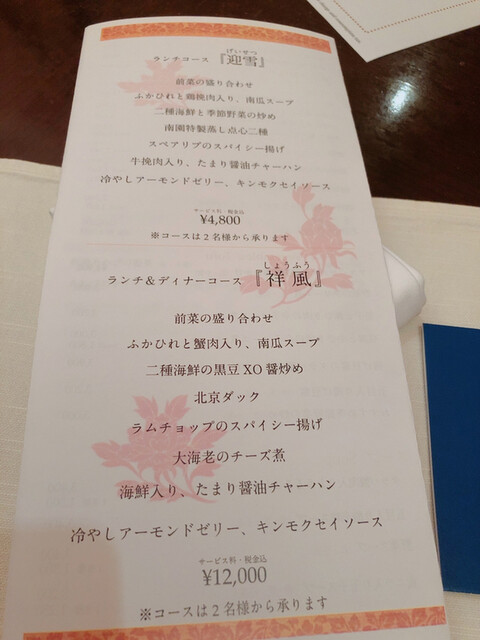 げいせつ
ランチコース『迎雪』
前菜の盛り合わせ
ふかひれと鶏挽肉入り、南瓜スープ
二種海鮮と季節野菜の炒め
南園特製蒸し点心二種
スペアリブのスパイシー揚げ
牛挽肉入り、たまり醤油チャーハン
冷やしアーモンドゼリー、キンモクセイソース
サービス料・税金込
¥4,800
※コースは2名様から承ります
しょうふう
ランチ&ディナーコース『祥風』
前菜の盛り合わせ
ふかひれと蟹肉入り、南瓜スープ
二種海鮮の黒豆XO醤炒め
北京ダック
ラムチョップのスパイシー揚げ
大海老のチーズ煮
海鮮入り、たまり醤油チャーハン
冷やしアーモンドゼリー、キンモクセイソース
サービス料・税金込
¥12,000
※コースは2名様から承ります